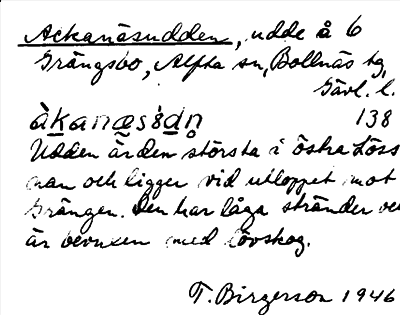 Ackanäsudden, udde å 6
Grängsbo, Alfta sn, Bollnäs tg,
Gävl. l.
àkanæsɜ̀dn̥ 138
Udden är den största i östra Löss
nan och ligger vid utloppet mot
Grängen. Den har låga stränder
är bevuxen med lövskog.
T. Birgerson 1946